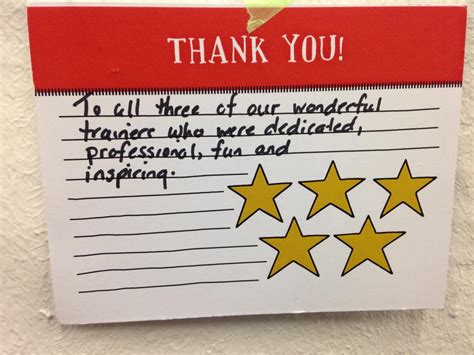 THANK YOU!
To all three of our wonderful
trainers who were dedicated,
professional, fun and
inspiring.